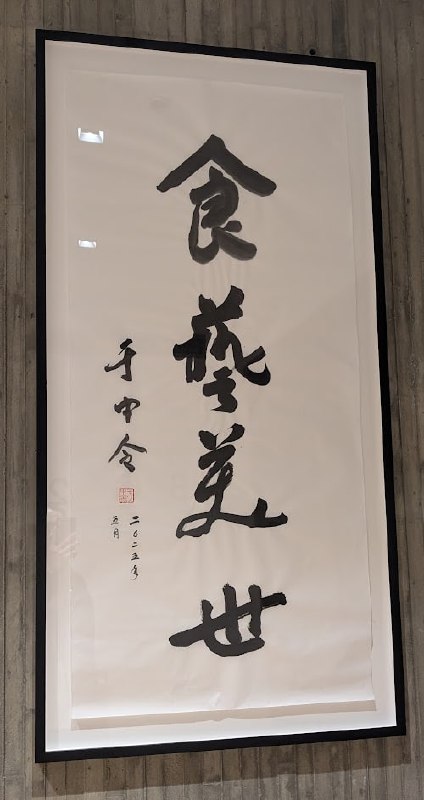 食藝美世
于中令
二〇二五年
五月